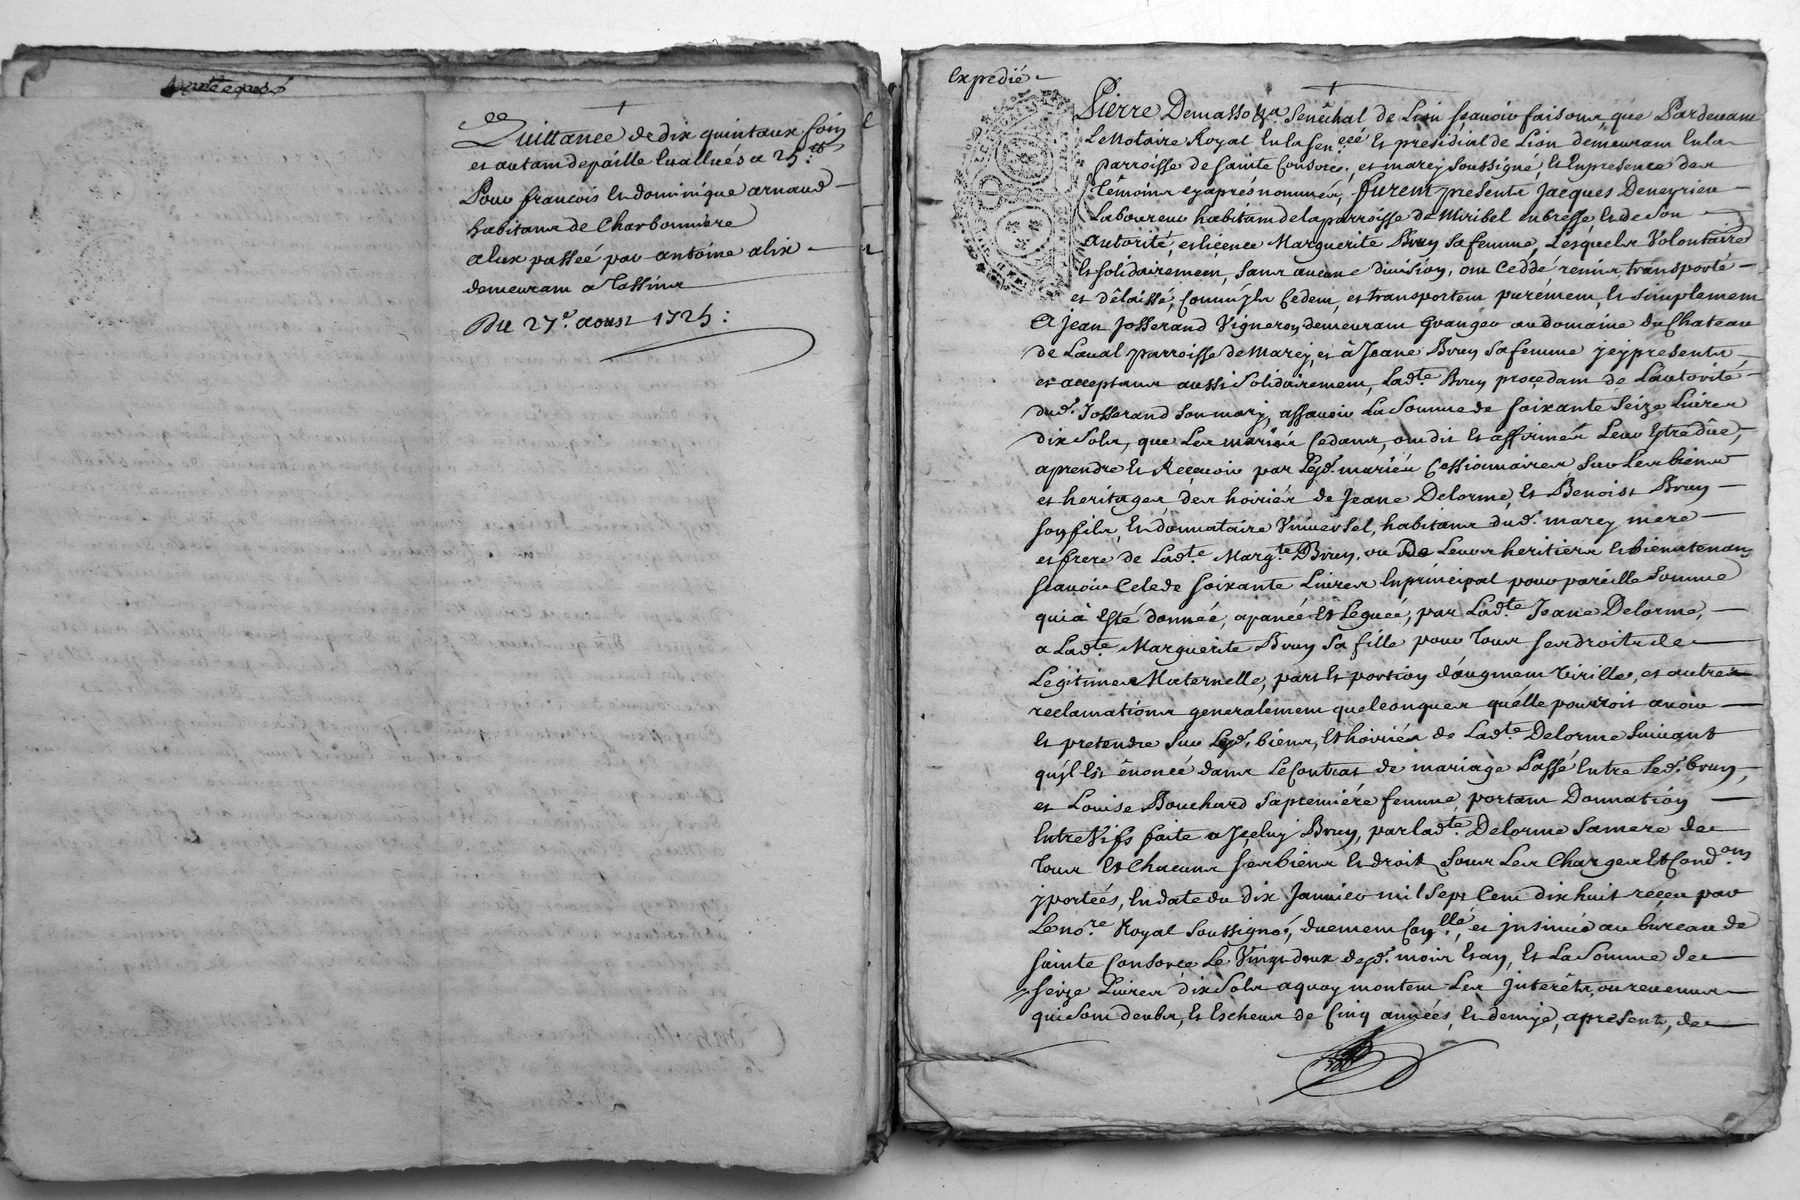 Quittance de dix quintaux foin
et autant de paille Evallués a 25 ₶
Pour francois et dominique arnaud
habitans de Charbonniere
a Eux passée par antoine alix
demeurant a Tassins
Du 27e. aoust 1725 :
Expedié
Pierre Demasso Senêchal de Lion scavoir faisons que Pardevant
Le Notaire Royal En la senceé et presidial de Lion demeurant En la
parroisse de Sainte Consorce, et marcy soussigné, et En presence des
têmoins cy aprés nommés, furent presents Jacques Deneyrieu
Laboureur habitant de la parroisse de Miribel en bresse et de son
autorité, et licence Marguerite Bruy sa femme, Lesquels Volontaires
Et solidairement, sans aucune division, ont Ceddé remis, transporté
et dêlaissé, Comm'jls Cedent, et transportent purement, et simplement
A jean Josserand Vigneron demeurant Granger au domaine du Chateau
de Laval parroisse de Marcy, et à Jeane Bruy sa femme jcy presents
et acceptans aussi solidairement, Ladte. Bruy procedant de L'autorité
dud. Josserand son mary, assavoir La Somme de soixante seize Livres
dix sols, que Les mariés Cedans, ont dit et affirmér Leur Estre dûe,
a prendre et Recevoir par Lesd. mariés Cessionnaires, sur Les biens
et heritages des hoiries de Jeane Delorme, et Benoist Bruy
son fils, et donnataire Universel, habitans dud. marcy mere
et frere de Ladte Margte. Bruy, ou De Leurs heritiers et bienstenans
scavoir Cele de soixante Livres En principal pour pareille Somme
qui à Esté donnée, apanée et Leguée, par Ladte Jeane Delorme,
a Ladte Marguerite Bruy sa fille pour Tous ses droits de
Legitimes Maternelle, part et portion d'augment Virille, et autres
reclamations generalement quelconques qu'elle pourroit avoir
Et pretendre sur Lesd. biens, et hoiries de Ladte. Delorme Suivant
qu'jl Est ênoncé dans Le Contrat de mariage Passé Entre Led. bruy,
et Louise Bouchard sa premiére femme, portant Donnation
Entre Vifs faite a Jceluy Bruy, par ladte. Delorme sa mere de
Tous et Chacuns ses biens et droits sous Les Charges et Condons
y portées, En date du dix Janvier mil Sept Cent dix huit receu par
Le nore. Royal soussigné, duement Conllé, et jnsinué au bureau de
Sainte Consorce Le Vingt deux desd. mois et an, Et La somme de
seize Livres dix sols a quoy montent Les jnterêts, ou revenus
qui sont deubs, et Escheus de Cinq annéés, et demye, a present, de